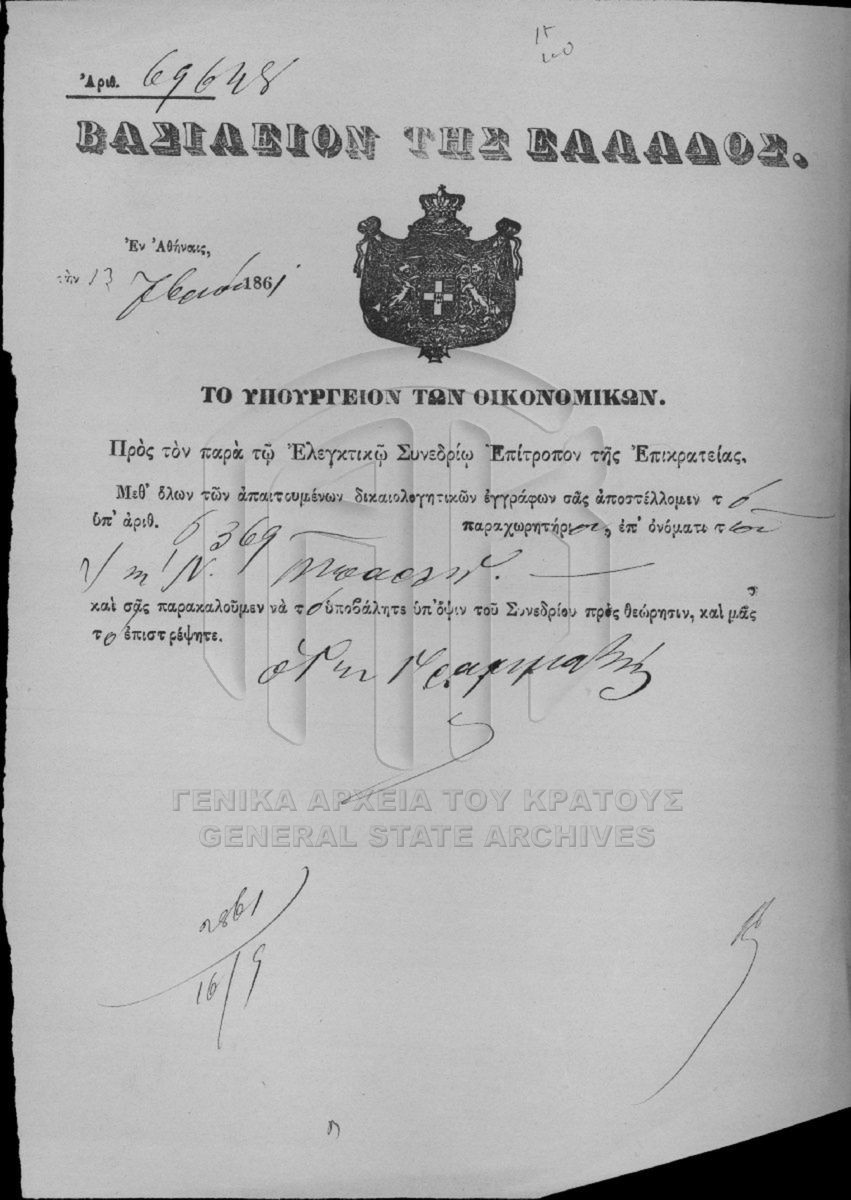 Ἀριθ. 69648
ΒΑΣΙΛΕΙΟΝ ΤΗΣ ΕΛΛΑΔΟΣ.
Ἐν Ἀθήναις,
τὴν 13 7βρίου 1861
ΤΟ ΥΠΟΥΡΓΕΙΟΝ ΤΩΝ ΟΙΚΟΝΟΜΙΚΩΝ.
Πρὸς τὸν παρὰ τῷ Ἐλεγκτικῷ Συνεδρίῳ Ἐπίτροπον τῆς Ἐπικρατείας.
Μεθ' ὅλων τῶν ἀπαιτουμένων δικαιολογητικῶν ἐγγράφων σᾶς ἀποστέλλομεν τὸ
ὑπ' ἀριθ. 6369 παραχωρητήριον, ἐπ' ὀνόματι τοῦ
Ν.
καὶ σᾶς παρακαλοῦμεν νὰ τὸ ὑποβάλητε ὑπ' ὄψιν τοῦ Συνεδρίου πρὸς θεώρησιν, καὶ μᾶς
τὸ ἐπιστρέψητε.
ΓΕΝΙΚΑ ΑΡΧΕΙΑ ΤΟΥ ΚΡΑΤΟΥΣ
GENERAL STATE ARCHIVES
2861
16/9